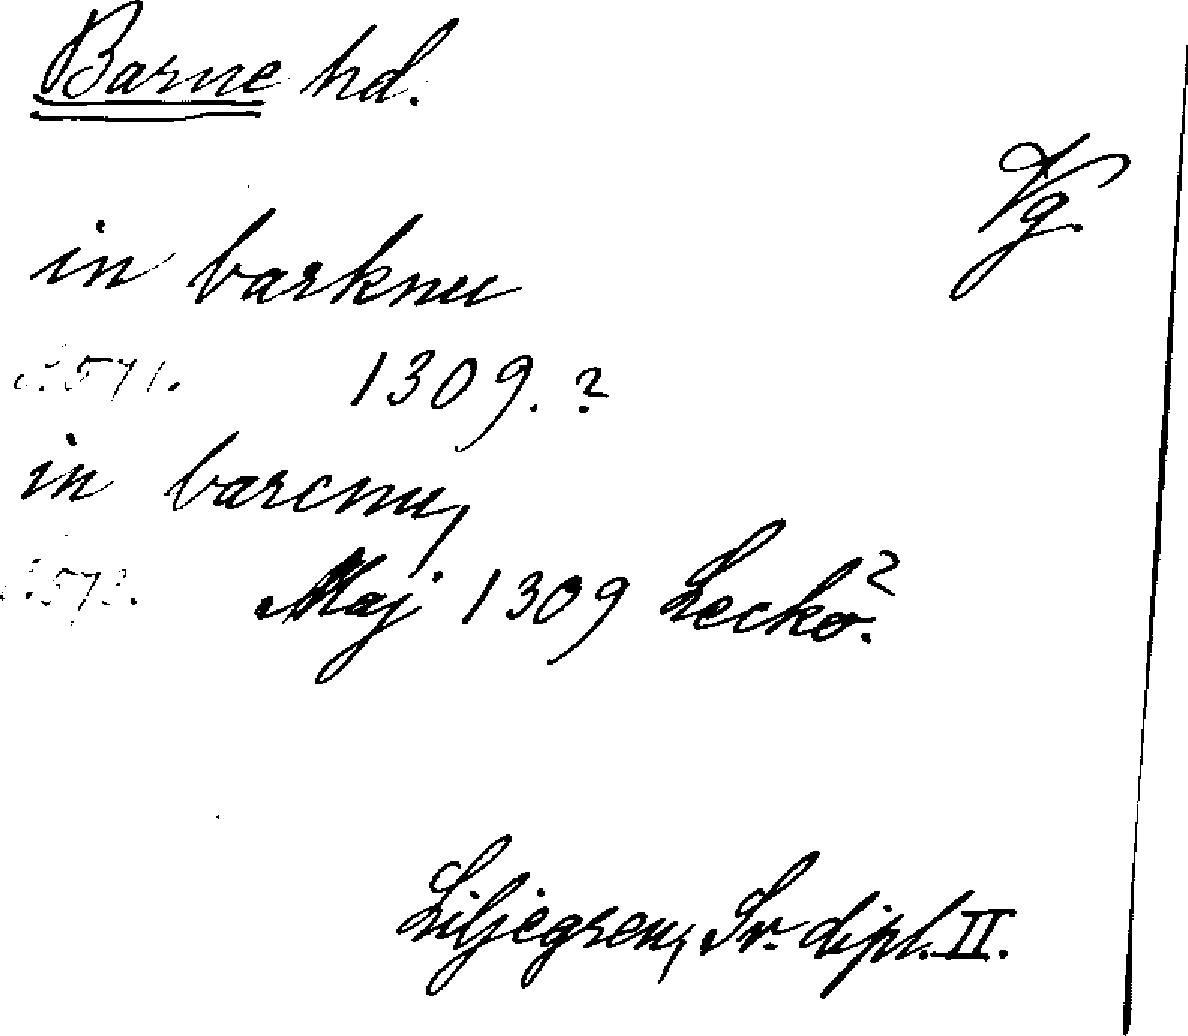 Barne hd.
Vg.
in barknu
S. 571. 1309. ?
in barcnu,
S. 573. Maj 1309 Leckö?
Liljegren, Sv. dipl. II.